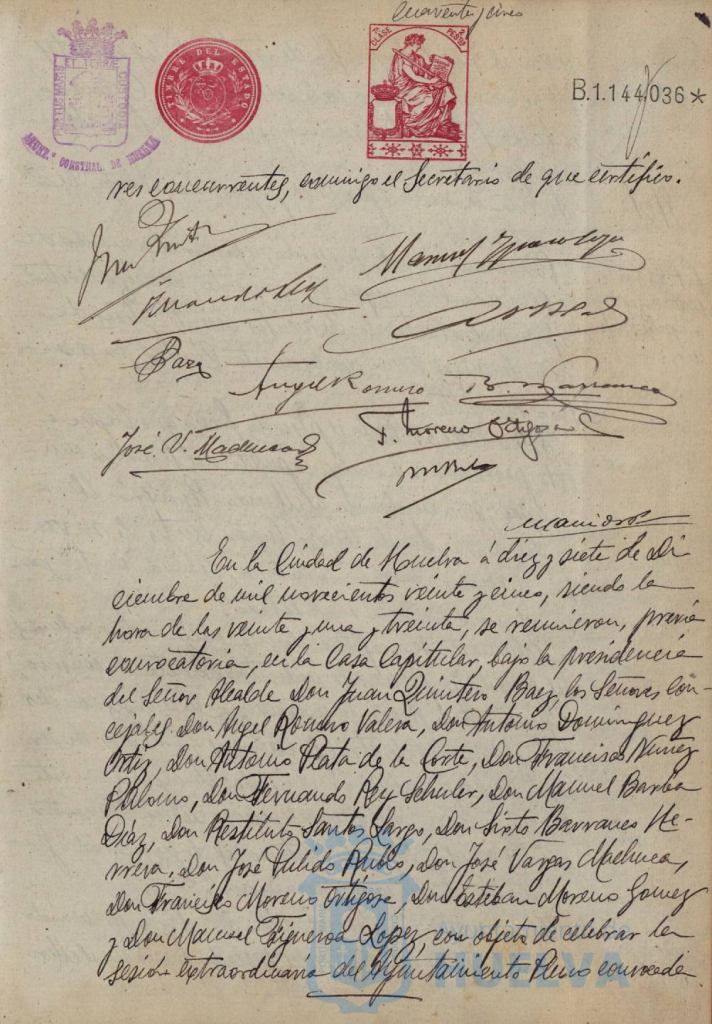 Cuarenta y cinco
7ª CLASE 2 PESETAS
TIMBRE DEL ESTADO
B.1.144,036*
AYUNTº CONSTNAL. DE HUELVA
res concurrentes, conmigo el Secretario de que certifico.
Manuel Figueroa Lopez
Fernando Rey
Baez
Angel Romero
B. Barranco
José V. Machuca
F. Moreno Ortigosa
En la Ciudad de Huelva á diez y siete de Di
ciembre de mil novecientos veinte y cinco, siendo la
hora de las veinte y una y treinta, se reunieron, previa
convocatoria, en la Casa Capitular, bajo la presidencia
del Señor Alcalde Don Juan Quintero Baez, los Señores con-
cejales Don Angel Romero Valera, Don Antonio Dominguez
Ortiz, Don Antonio Plata de la Corte, Don Francisco Nuñez
Palomo, Don Fernando Rey Schuler, Don Manuel Barba
Diaz, Don Restituto Santos Largo, Don Sixto Barranco He-
rrera, Don José Pulido Rubio, Don José Vargas Machuca,
Don Francisco Moreno Ortigosa, Don Esteban Moreno Gomez
y Don Manuel Figueroa Lopez, con objeto de celebrar la
sesión extraordinaria del Ayuntamiento Pleno convocada
HUELVA